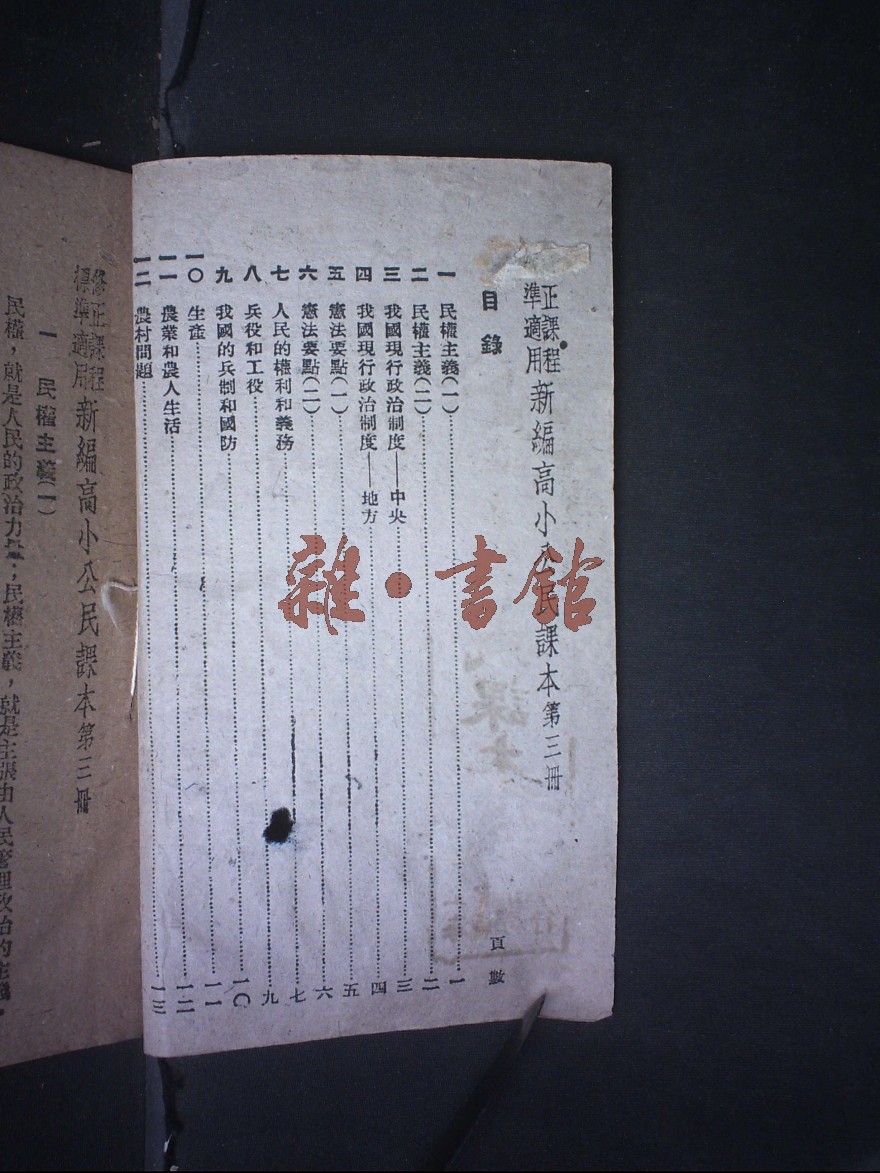 正課程
準適用
新編高小公民課本第三冊
目錄 頁數
一 民權主義(一)……一
二 民權主義(二)……二
三 我國現行政治制度——中央……三
四 我國現行政治制度——地方……四
五 憲法要點(一)……五
六 憲法要點(二)……六
七 人民的權利和義務……七
八 兵役和工役……九
九 我國的兵制和國防……一〇
一〇 生產……一一
一一 農業和農人生活……一二
一二 農村問題……一三
雜·書館
修正課程
標準適用
新編高小公民課本第三冊
一 民權主義(一)
民權，就是人民的政治力量；民權主義，就是主張由人民管理政治的主義。